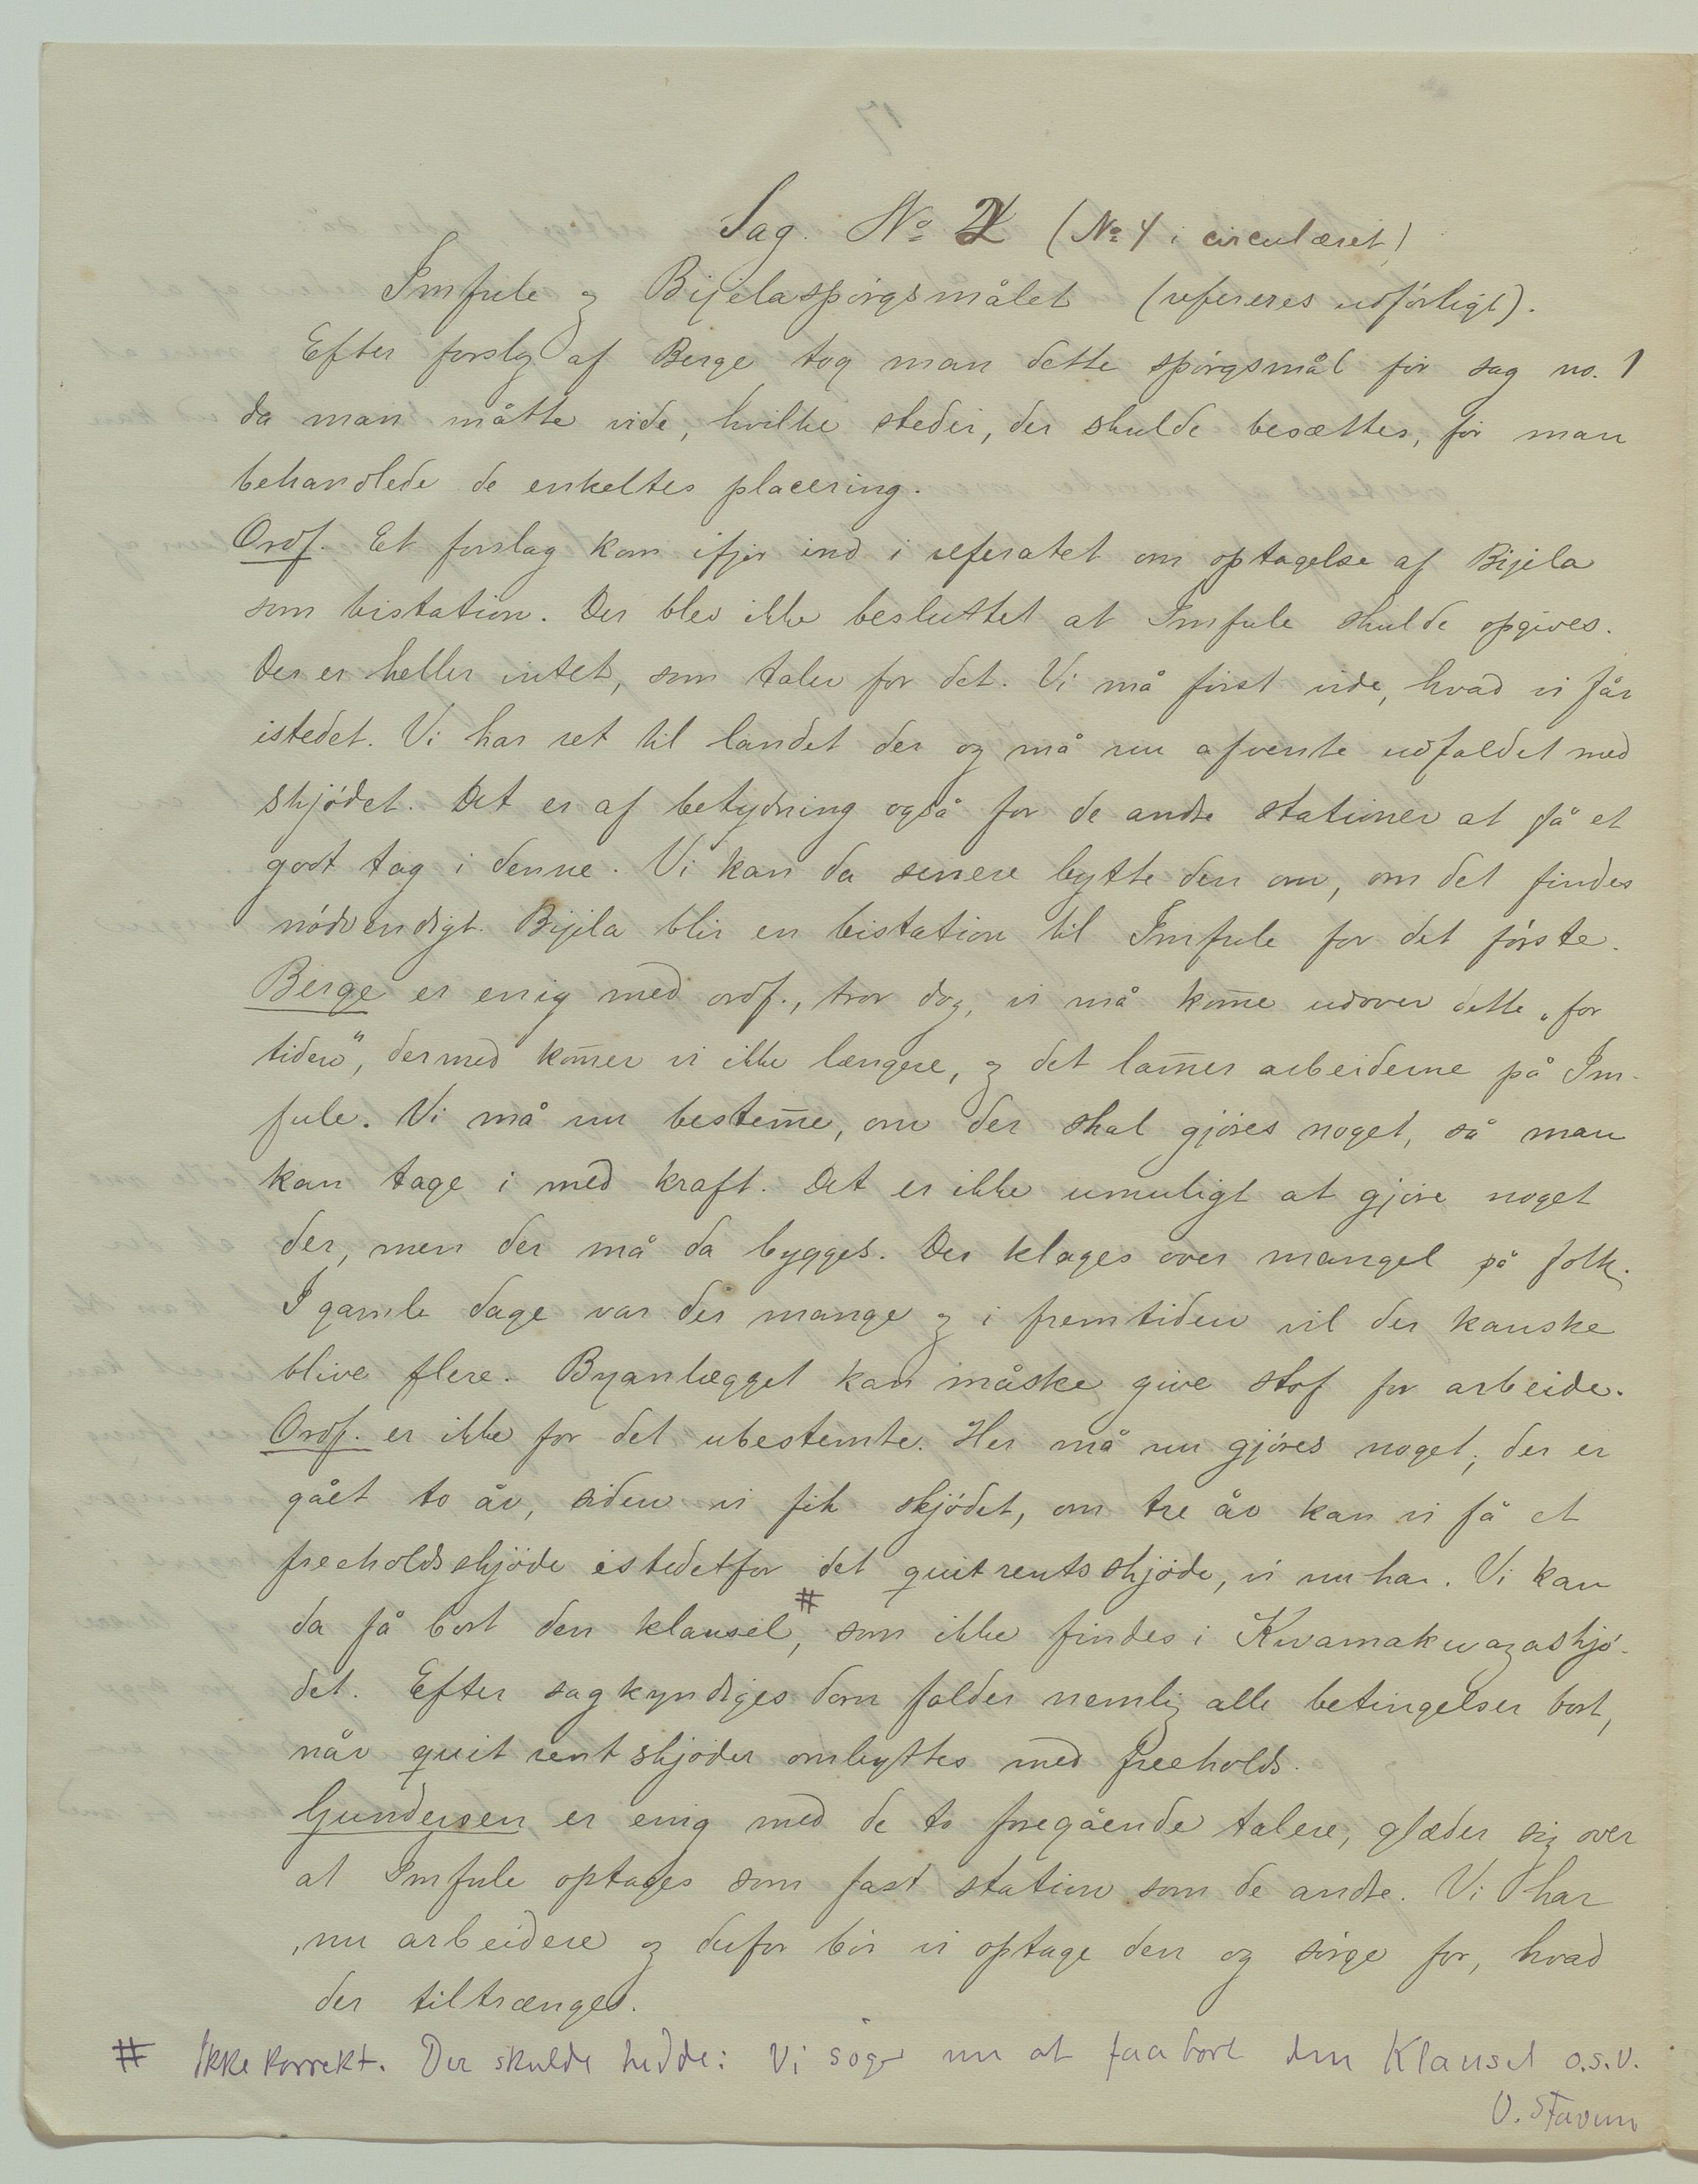 Sag. No 2 (No 4 i circulæret)
Imfule og Bijelaspörgsmålet (refereres udförligt).
Efter forslag af Berge tog man dette spörgsmål för sag no. 1
da man måtte vide, hvilke steder, der skulde besættes, för man
behandlede de enkeltes placering.
Ordf. Et forslag kom ifjor ind i referatet om optagelse af Bijela
som bistation. Der blev ikke besluttet at Imfule skulde opgives.
Der er heller intet, som taler for det. Vi må först vide, hvad vi får
istedet. Vi har ret til landet der og må nu afvente udfaldet med
skjödet. Det er af betydning også for de andre stationer at få et
godt tag i denne. Vi kan da senere bytte den om, om det findes
nödvendigt. Bijela blir en bistation til Imfule for det förste.
Berge er enig med ordf., tror dog, vi må kom̄e udover dette „for
tiden", dermed kom̄er vi ikke længere, og det lam̄er arbeiderne på Im-
fule. Vi må nu bestem̄e, om der skal gjöres noget, så man
kan tage i med kraft. Det er ikke umuligt at gjöre noget
der, men der må da bygges. Der klages over mangel på folk.
I gamle dage var der mange og i fremtiden vil der kanske
blive flere. Byanlægget kan måske give stof for arbeide.
Ordf. er ikke for det ubestemte. Her må nu gjöres noget, der er
gået to år, siden vi fik skjödet, om tre år kan vi få et
freeholdsskjöde istedetfor det quitrentsskjöde, vi nu har. Vi kan
da få bort den klausel, # som ikke findes i Kwamakwazaskjö-
det. Efter sagkyndiges dom falder nemlig alle betingelser bort,
når quitrentskjöder ombyttes med freeholds.
Gundersen er enig med de to foregående talere, glæder sig over
at Imfule optages som fast station som de andre. Vi har
nu arbeidere og derfor bör vi optage den og sörge for, hvad
der tiltrænges.
# Ikke korrekt. Der skulde hedde: Vi söger nu at faa bort den Klausel o.s.v.
O. Stavem